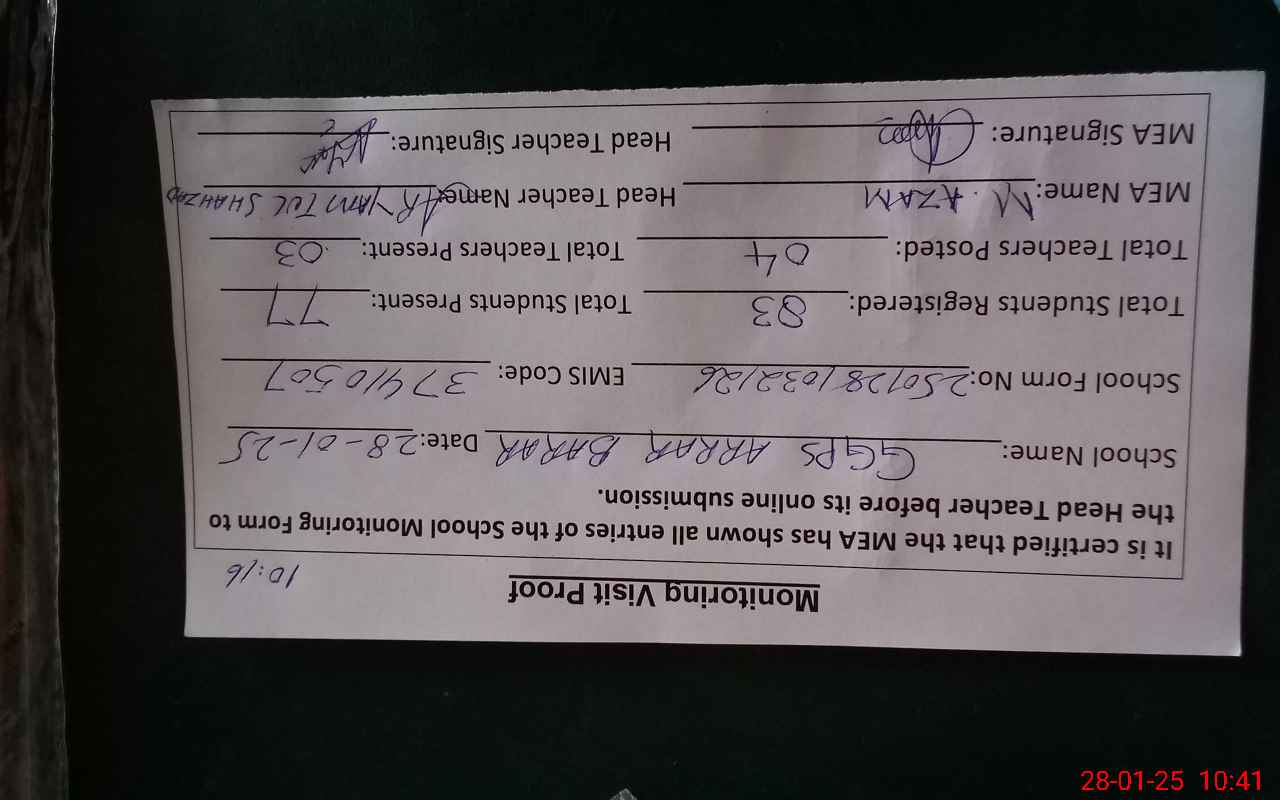 Monitoring Visit Proof
10:16
It is certified that the MEA has shown all entries of the School Monitoring Form to
the Head Teacher before its online submission.
School Name: GGPS ARRAR BARAR Date: 28-01-25
School Form No: 250128/032126 EMIS Code: 37410507
Total Students Registered: 83 Total Students Present: 77
Total Teachers Posted: 04 Total Teachers Present: 03
MEA Name: M. AZAM Head Teacher Name: SHAHZAD
MEA Signature: Head Teacher Signature:
28-01-25 10:41